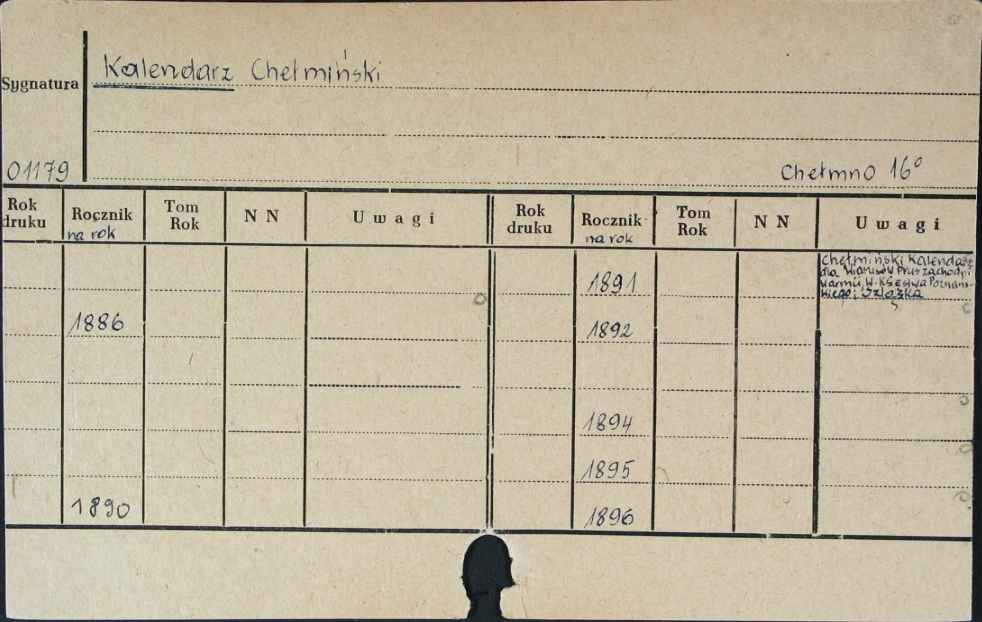 Kalendarz Chełmiński
Sygnatura
01179
Chełmno 16°
Rok druku
Rocznik na rok
Tom Rok
N N
Uwagi
Rok druku
Rocznik na rok
Tom Rok
N N
Uwagi
1891
Chełmiński Kalendarz
dla Wiarusów Prus Zachodni
Warmii, W. Księstwa Poznań-
skiego i Szląska
1886
1892
1894
1895
1890
1896